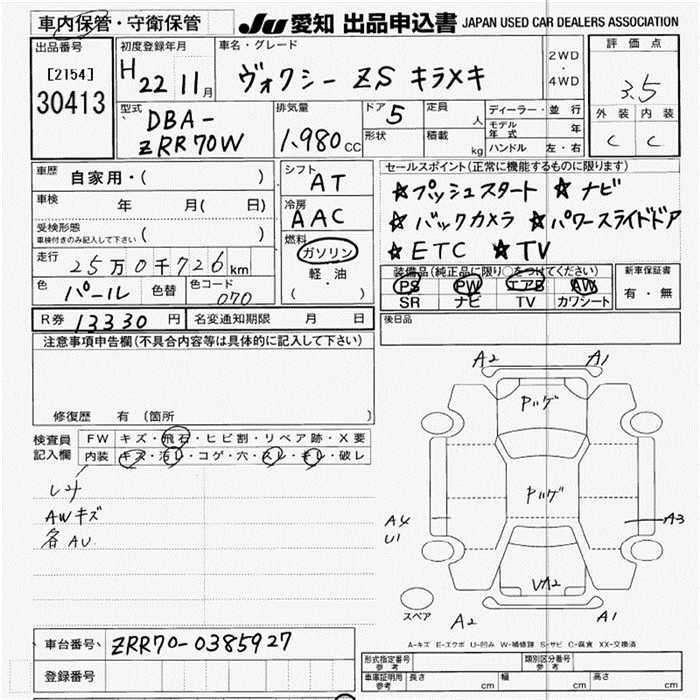 車内保管・守衛保管
JU 愛知 出品申込書 JAPAN USED CAR DEALERS ASSOCIATION
出品番号
[2154]
30413
初度登録年月
H 22 11月
車名・グレード
ヴォクシー ZS キラメキ
2WD
・
4WD
評価点
3.5
外装 内装
C C
型式
DBA-
ZRR70W
排気量
1.980 CC
ドア 5
形状
定員 人
積載 kg
ディーラー・並行
モデル年式 年
ハンドル 左・右
車歴 自家用・( )
車検 年 月( 日)
受検形態
車検付きのみ記入して下さい ( )
走行 25万0千726km
色 パール 色替
色コード 070
シフト AT
冷房 AAC
燃料
ガソリン
軽・油
( )
セールスポイント(正常に機能するものに限ります)
☆プッシュスタート ☆ナビ
☆バックカメラ ☆パワースライドドア
★ETC ★TV
装備品(純正品に限り○をつけてください)
PS PW エアB AW
SR ナビ TV カワシート
新車保証書
有・無
R券 13330円 名変通知期限 月 日
後日品
注意事項申告欄(不具合内容等は具体的に記入して下さい)
修復歴 有 〔箇所 〕
検査員記入欄
FW キズ・飛石・ヒビ割・リペア跡・X要
内装 キズ・汚レ・コゲ・穴・スレ・キレ・破レ
AWキズ
各AU
A2 A1
Pッゲ
Pッゲ
A4
U1
A3
VA2
スペア
A2 A1
A-キズ E-エクボ U-凹み W-補修跡 S-サビ C-腐食 XX-交換済
車台番号 ZRR70-0385927
登録番号
形式指定番号 参考
類別区分番号 参考
車庫証明用 参考 長さ cm 幅 cm 高さ cm